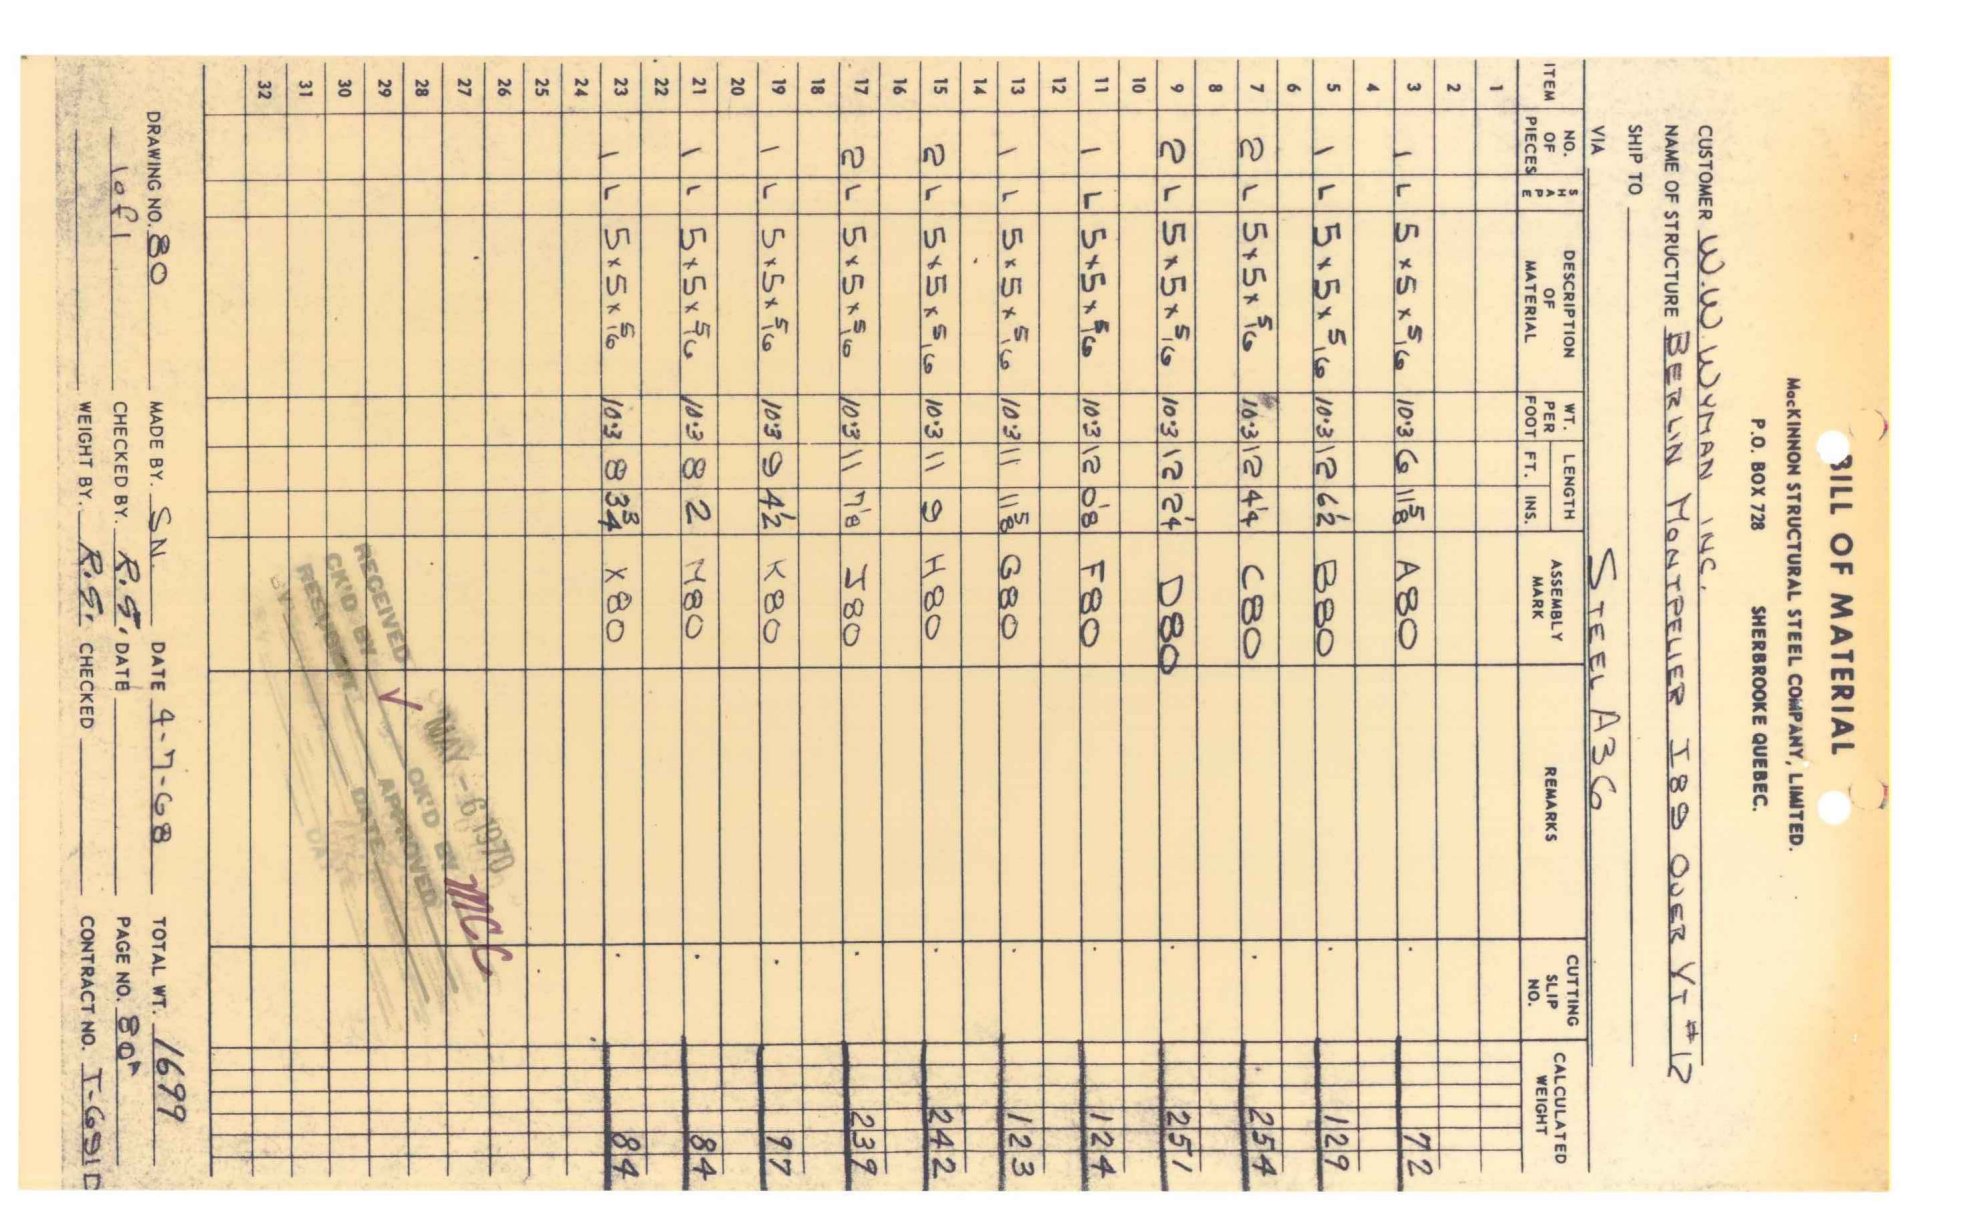 BILL OF MATERIAL
MacKINNON STRUCTURAL STEEL COMPANY, LIMITED.
P.O. BOX 728 SHERBROOKE QUEBEC.
CUSTOMER W.W. WYMAN INC.
NAME OF STRUCTURE BERLIN MONTPELIER I89 OVER VT #12
SHIP TO
VIA STEEL A36
ITEM NO. OF PIECES SHAPE DESCRIPTION OF MATERIAL WT. PER FOOT LENGTH FT. INS. ASSEMBLY MARK REMARKS CUTTING SLIP NO. CALCULATED WEIGHT
1
2
3 1 L 5x5x5/16 10.3 6 11 5/8 A80 72
4
5 1 L 5x5x5/16 10.3 12 6 1/2 B80 129
6
7 2 L 5x5x5/16 10.3 12 4 1/4 C80 254
8
9 2 L 5x5x5/16 10.3 12 2 1/4 D80 251
10
11 1 L 5x5x5/16 10.3 12 0 1/8 F80 124
12
13 1 L 5x5x5/16 10.3 11 11 5/8 G80 123
14
15 2 L 5x5x5/16 10.3 11 9 H80 242
16
17 2 L 5x5x5/16 10.3 11 7 1/8 J80 239
18
19 1 L 5x5x5/16 10.3 9 4 1/2 K80 97
20
21 1 L 5x5x5/16 10.3 8 2 M80 84
22
23 1 L 5x5x5/16 10.3 8 3 3/4 X80 84
24
25
26
27
28
29
30
31
32
MAY - 6 1970
RECEIVED
CK'D BY OK'D BY MCC
APPROVED
DATE
DRAWING NO. 80 MADE BY. SN. DATE 4-7-68 TOTAL WT. 1699
1 of 1 CHECKED BY. R.S. DATE PAGE NO. 80A
WEIGHT BY. R.S. CHECKED CONTRACT NO. T-691D